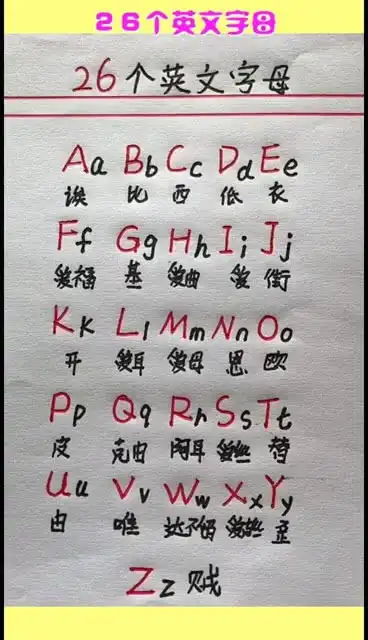 26个英文字母
26个英文字母
Aa Bb Cc Dd Ee
诶 比 西 低 衣
Ff Gg Hh Ii Jj
爱福 基 爱曲 爱 街
Kk Ll Mm Nn Oo
开 爱耳 爱母 恩 欧
Pp Qq Rr Ss Tt
皮 克由 阿耳 爱丝 替
Uu Vv Ww Xx Yy
由 唯 达不留 歪
Zz 贼